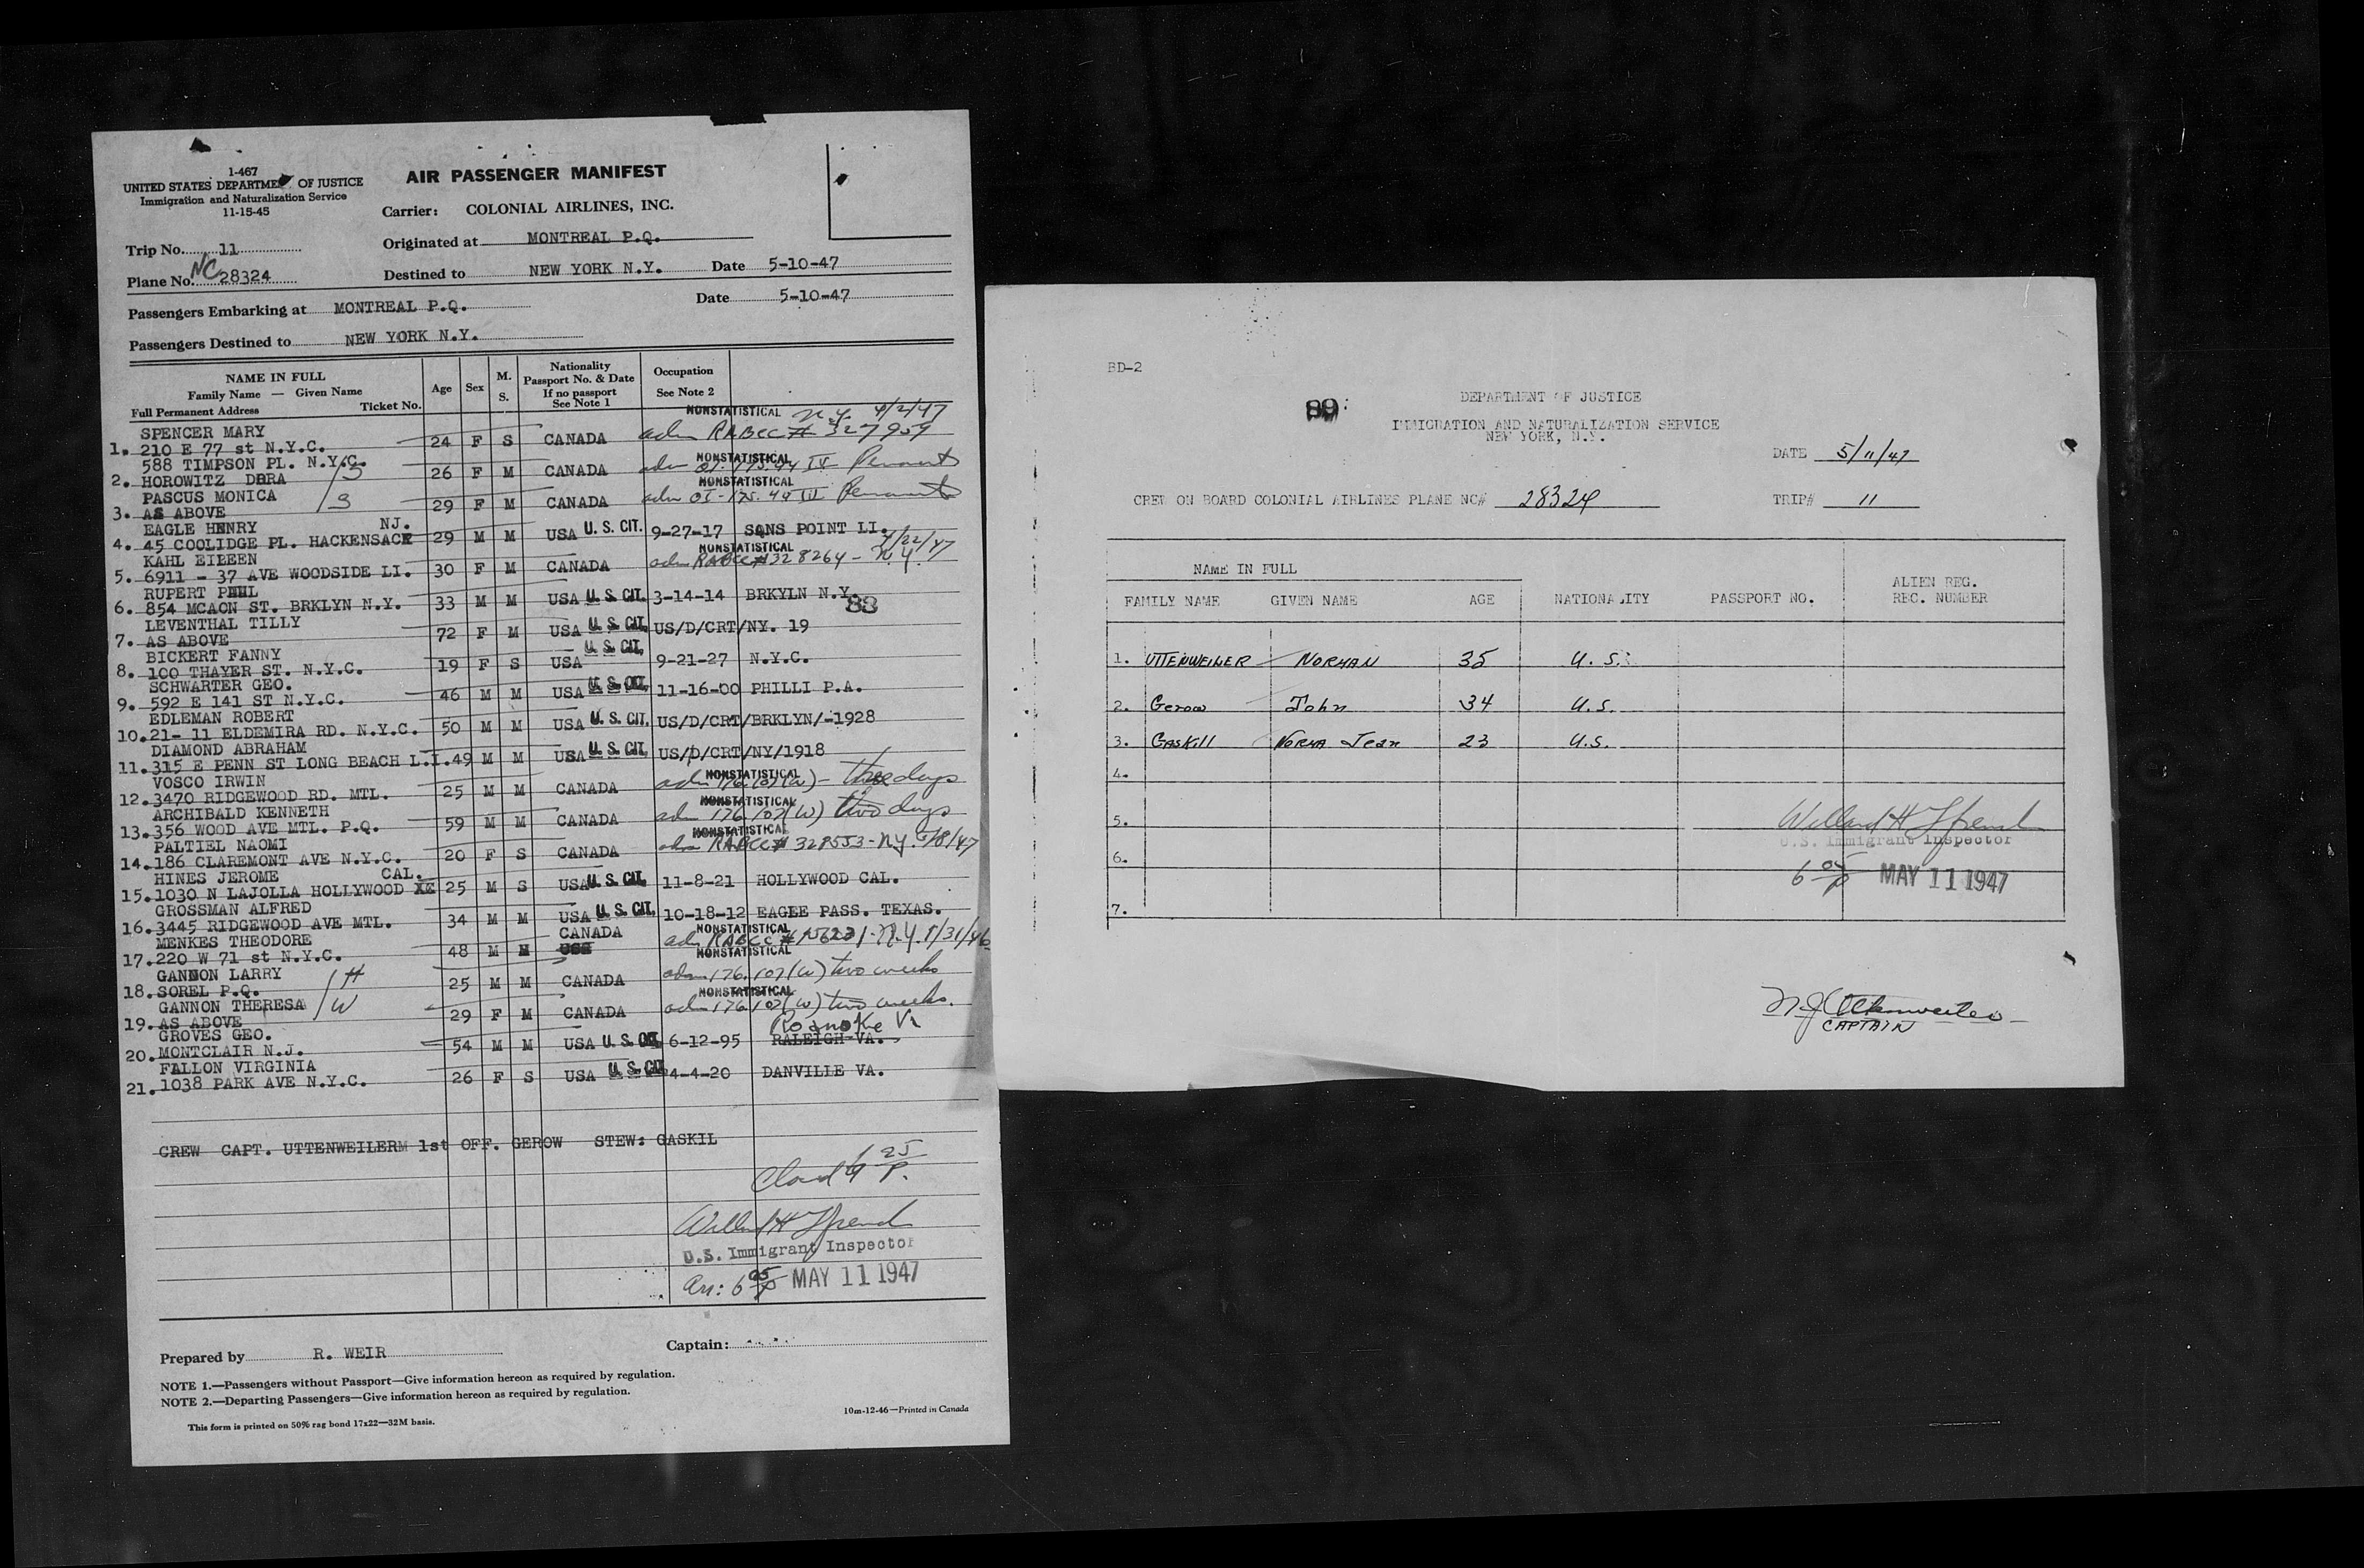 1-467
UNITED STATES DEPARTMENT OF JUSTICE
Immigration and Naturalization Service
11-15-45
AIR PASSENGER MANIFEST
Carrier: COLONIAL AIRLINES, INC.
Trip No. 11
Originated at MONTREAL P.Q.
Plane No. NC 28324
Destined to NEW YORK N.Y. Date 5-10-47
Passengers Embarking at MONTREAL P.Q. Date 5-10-47
Passengers Destined to NEW YORK N.Y.
NAME IN FULL
Family Name — Given Name
Full Permanent Address Ticket No.
Age Sex M. S.
Nationality
Passport No. & Date
If no passport
See Note 1
Occupation
See Note 2
NONSTATISTICAL N.Y. 4/2/47
SPENCER MARY
1. 210 E 77 st N.Y.C. 24 F S CANADA adm RABCC# 327959
588 TIMPSON PL. N.Y.C. NONSTATISTICAL
2. HOROWITZ DORA /S 26 F M CANADA adm
PASCUS MONICA NONSTATISTICAL
3. AS ABOVE /S 29 F M CANADA adm
EAGLE HENRY NJ.
4. 45 COOLIDGE PL. HACKENSACK 29 M M USA U. S. CIT. 9-27-17 SANS POINT LI.
KAHL EILEEN NONSTATISTICAL 4/22/47
5. 6911 - 37 AVE WOODSIDE LI. 30 F M CANADA adm RABCC# 328264 - N.Y.
RUPERT PHIL
6. 854 MCAON ST. BRKLYN N.Y. 33 M M USA U. S. CIT. 3-14-14 BRKYLN N.Y.
88
LEVENTHAL TILLY
7. AS ABOVE 72 F M USA U. S. CIT. US/D/CRT/NY. 19
BICKERT FANNY
8. 100 THAYER ST. N.Y.C. 19 F S USA U. S. CIT. 9-21-27 N.Y.C.
SCHWARTER GEO.
9. 592 E 141 ST N.Y.C. 46 M M USA U. S. CIT. 11-16-00 PHILLI P.A.
EDLEMAN ROBERT
10. 21- 11 ELDEMIRA RD. N.Y.C. 50 M M USA U. S. CIT. US/D/CRT/BRKLYN/-1928
DIAMOND ABRAHAM
11. 315 E PENN ST LONG BEACH L.I. 49 M M USA U. S. CIT. US/D/CRT/NY/1918
VOSCO IRWIN NONSTATISTICAL
12. 3470 RIDGEWOOD RD. MTL. 25 M M CANADA adm 176.107(W) - three days
ARCHIBALD KENNETH NONSTATISTICAL
13. 356 WOOD AVE MTL. P.Q. 59 M M CANADA adm 176.107(W) two days
PALTIEL NAOMI NONSTATISTICAL
14. 186 CLAREMONT AVE N.Y.C. 20 F S CANADA adm RABCC# 328553 - N.Y.
HINES JEROME CAL.
15. 1030 N LAJOLLA HOLLYWOOD 25 M S USA U. S. CIT. 11-8-21 HOLLYWOOD CAL.
GROSSMAN ALFRED
16. 3445 RIDGEWOOD AVE MTL. 34 M M USA U. S. CIT. 10-18-12 EAGEE PASS. TEXAS.
MENKES THEODORE CANADA NONSTATISTICAL
17. 220 W 71 st N.Y.C. 48 M M USA adm RABCC #
GANNON LARRY NONSTATISTICAL
18. SOREL P.Q. /H 25 M M CANADA adm 176.107(W) two weeks
GANNON THERESA NONSTATISTICAL
19. AS ABOVE /W 29 F M CANADA adm 176.107(W) two weeks.
GROVES GEO. Roanoke Va
20. MONTCLAIR N.J. 54 M M USA U. S. CIT. 6-12-95 RALEIGH VA.
FALLON VIRGINIA
21. 1038 PARK AVE N.Y.C. 26 F S USA U. S. CIT. 4-4-20 DANVILLE VA.
CREW CAPT. UTTENWEILERM 1st OFF. GEROW STEW: GASKIL
U.S. Immigrant Inspector
Arr: 6 05 P MAY 11 1947
Prepared by R. WEIR
Captain:
NOTE 1.—Passengers without Passport—Give information hereon as required by regulation.
NOTE 2.—Departing Passengers—Give information hereon as required by regulation.
10m-12-46—Printed in Canada
This form is printed on 50% rag bond 17x22—32M basis.
BD-2
89
DEPARTMENT OF JUSTICE
IMMIGRATION AND NATURALIZATION SERVICE
NEW YORK, N.Y.
DATE 5/11/47
CREW ON BOARD COLONIAL AIRLINES PLANE NC# 28324 TRIP# 11
NAME IN FULL
FAMILY NAME GIVEN NAME AGE NATIONALITY PASSPORT NO. ALIEN REG. REC. NUMBER
1. UTTENWEILER NORMAN 35 U.S.
2. Gerow John 34 U.S.
3. Gaskill Norma Jean 23 U.S.
4.
5.
U.S. Immigrant Inspector
6.
6 05 P MAY 11 1947
7.
N J Uttenweiler
CAPTAIN